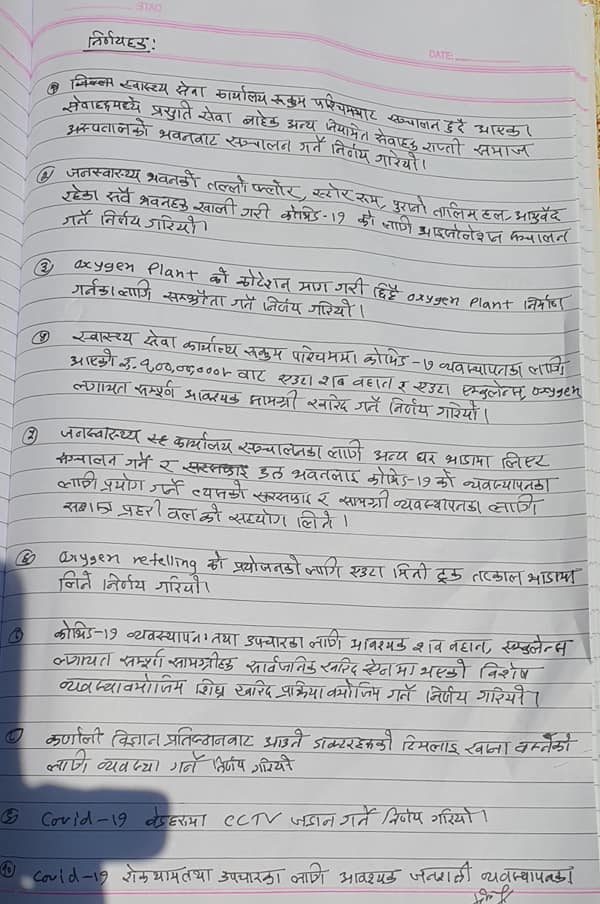 DATE
DATE:
निर्णयहरु:
१) जिल्ला स्वास्थ्य सेवा कार्यालय रुकुम पश्चिमबाट सञ्चालन हुदै आएका
सेवाहरुमध्ये प्रसुति सेवा बाहेक अन्य नियमित सेवाहरु राप्ती समाज
अस्पतालको भवनबाट सञ्चालन गर्ने निर्णय गरियो।
२) जनस्वास्थ्य भवनको तल्लो फ्लोर, स्टोर रुम, पुरानो तालिम हल, आयुर्वेद
रहेका सबै भवनहरु खाली गरी कोभिड-19 को लागि आइसोलेसन सञ्चालन
गर्ने निर्णय गरियो।
३) Oxygen Plant को कोटेशन माग गरी छिट्टै Oxygen Plant निर्माण
गर्नका लागि सम्झौता गर्ने निर्णय गरियो।
४) स्वास्थ्य सेवा कार्यालय रुकुम पश्चिममा कोभिड-१९ व्यवस्थापनका लागि
आएको रु. बाट एउटा शब वहान र एउटा एम्बुलेन्स, Oxygen
लगायत सम्पूर्ण आवश्यक सामग्री खरिद गर्ने निर्णय गरियो।
५) जनस्वास्थ्य कार्यालय सञ्चालनका लागि अन्य घर भाडामा लिएर
सञ्चालन गर्ने र हल भवनलाई कोभिड-19 को व्यवस्थापनका
लागि प्रयोग गर्ने त्यसको सरसफाइ र सामग्री व्यवस्थापनका लागि
सशस्त्र प्रहरी बल को सहयोग लिने।
६) Oxygen refelling को प्रयोजनको लागि एउटा मिनी ट्रक तत्काल भाडामा
लिने निर्णय गरियो।
७) कोभिड-19 व्यवस्थापन तथा उपचारका लागि आवश्यक शव वहान, एम्बुलेन्स
लगायत सम्पूर्ण सामग्रीहरु सार्वजनिक खरिद ऐनमा भएको विशेष
व्यवस्थाबमोजिम शिघ्र खरिद प्रक्रिया बमोजिम गर्ने निर्णय गरियो।
८) कर्णाली विज्ञान प्रतिष्ठानबाट आउने डाक्टरहरुको टिमलाई खाना बस्नेको
लागि व्यवस्था गर्ने निर्णय गरियो
९) Covid-19 बेडहरुमा CCTV जडान गर्ने निर्णय गरियो।
१०) Covid-19 रोकथाम तथा उपचारका लागि आवश्यक जनशक्ती व्यवस्थापनका